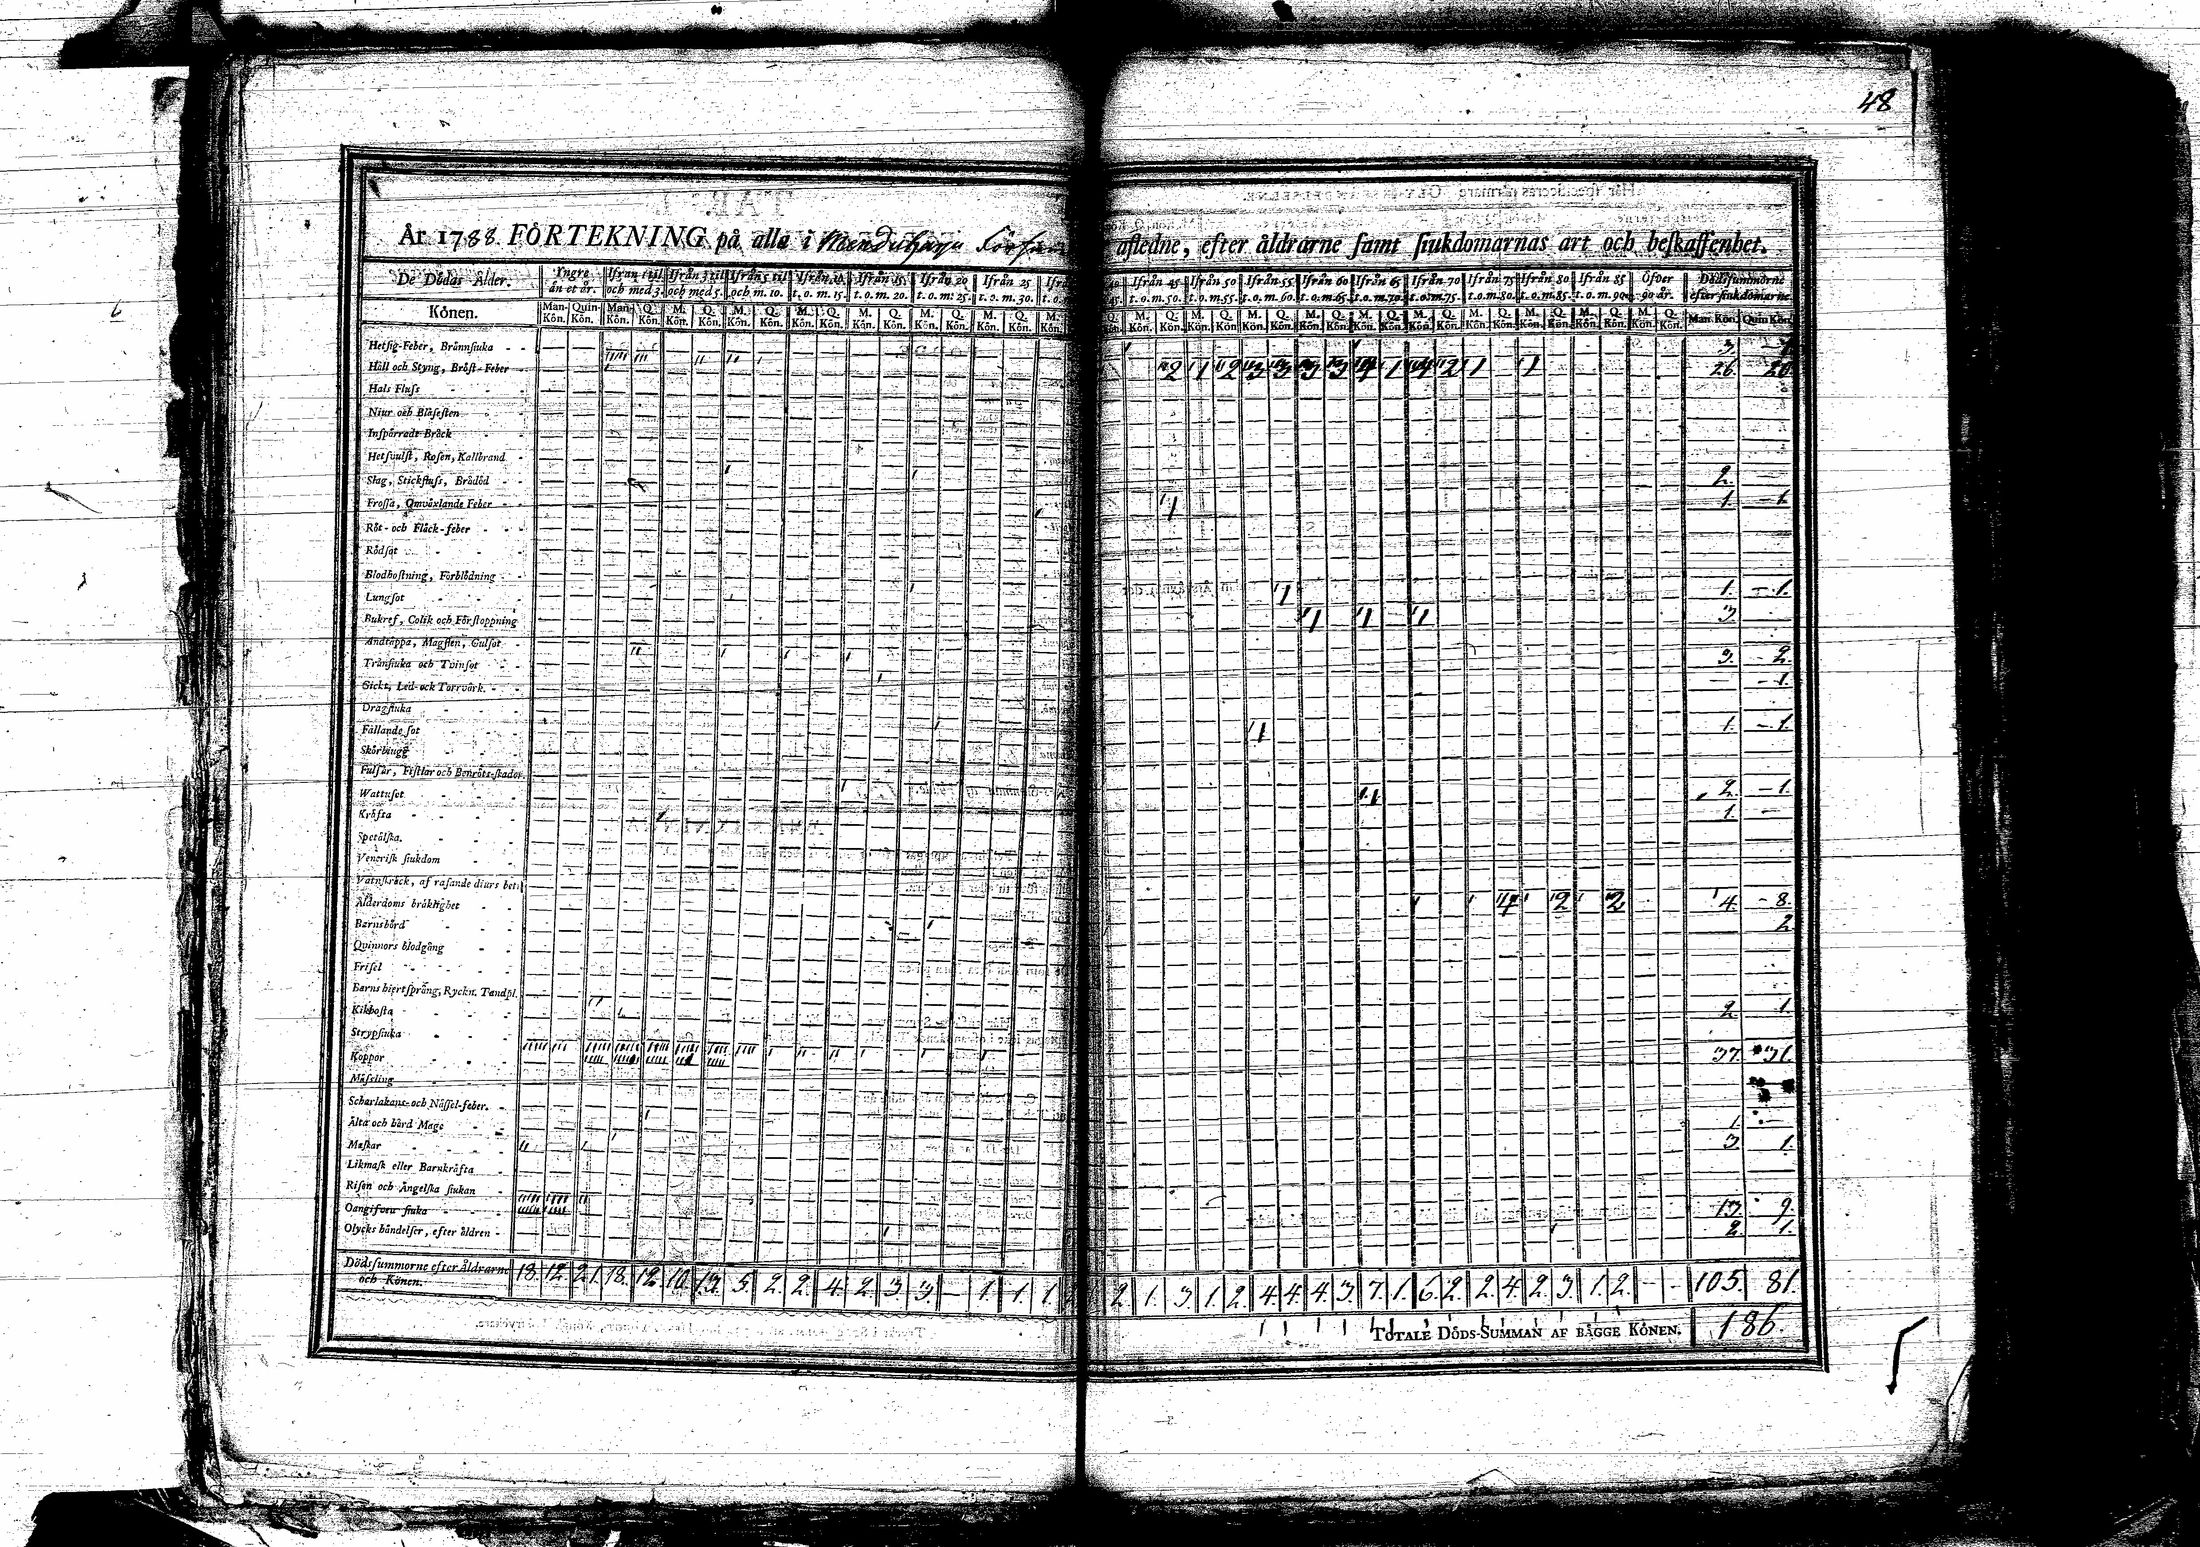 48
År 1788. FÖRTEKNING på alla i afledne, efter åldrarne samt siukdomarnas art och beskaffenhet.
De Dödas Ålder. Yngre än et år. Ifrån 1 til och med 3. Ifrån 3 til och med 5. Ifrån 5 til och m. 10. Ifrån 10 t. o. m. 15. Ifrån 15 t. o. m. 20. Ifrån 20 t. o. m. 25. Ifrån 25 t. o. m. 30. Ifrån 45 t. o. m. 50. Ifrån 50 t. o. m. 55. Ifrån 55 t. o. m. 60. Ifrån 60 t. o. m. 65. Ifrån 65 t. o. m. 70. Ifrån 70 t. o. m. 75. Ifrån 75 t. o. m. 80. Ifrån 80 t. o. m. 85. Ifrån 85 t. o. m. 90. Öfver 90 år. Dödssummorne efter siukdomarne.
Könen. Man-Kön. Quin-Kön. Man-Kön. Q. Kön. M. Kön. Q. Kön. M. Kön. Q. Kön. M. Kön. Q. Kön. M. Kön. Q. Kön. M. Kön. Q. Kön. M. Kön. Q. Kön. Man Kön. Quin Kön.
Hetsig-Feber, Brännsiuka - - 3. - 1.
Håll och Styng, Bröst-Feber 2 1 2 3 3 3 3 4 1 4 2 1 1 26. 20.
Hals Fluss
Niur och Blåsesten
Inspärradt Bråck
Hetsvulst, Rosen, Kallbrand
Slag, Stickfluss, Brådöd 2. -
Frossa, Omväxlande Feber 1 1. - 1.
Röt- och Fläck-feber
Rödsot
Blodhostning, Förblödning
Lungsot 1 1. - 1.
Bukref, Colik och Förstoppning 1 1 1 3.
Andtäppa, Magsten, Gulsot
Trånsiuka och Tvinsot 3. - 2.
Gickt, Led- och Torrvärk. - 1.
Dragsiuka
Fallande sot 1 1. - 1.
Skörbiugg
Fulsår, Fistlar och Benröts-skador
Wattusot 1 1 2. - 1.
Kräfta 1. -
Spetälska.
Venerisk siukdom
Vatnskräck, af rasande diurs bett
Ålderdoms bräklighet 4 2 2 4. - 8.
Barnsbörd 2
Quinnors blodgång
Frisel
Barns hiertsprång, Ryckn. Tandpl.
Kikhosta 2. 1.
Strypsiuka
Koppor 37. 31.
Mässling
Scharlakans- och Nässel-feber.
Älta och hård Mage 1. -
Maskar 3 1.
Likmask eller Barnkräfta
Risen och Ångelska siukan
Oangifven siuka 13. 9.
Olycks händelser, efter åldren 2. 1.
Dödssummorne efter Åldrarne och Könen. 18. 12. 2. 1. 18. 12. 10. 13. 5. 2. 2. 4. 2. 3. 3. - 1. 1. 1. 2. 1. 3. 1. 2. 4. 4. 4. 3. 7. 1. 6. 2. 2. 4. 2. 3. 1. 2. - - 105. 81.
TOTALE DÖDS-SUMMAN AF BÄGGE KÖNEN. 186.